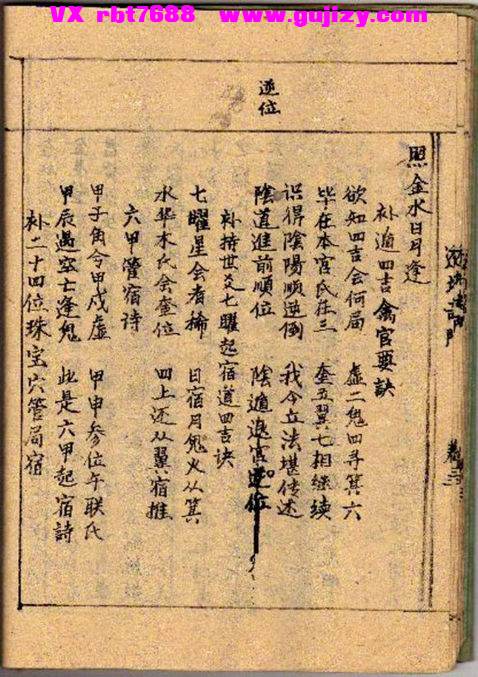 VX rbt7688 www.gujizy.com
逆位
照金水日月逢
补遁四吉禽官要訣
欲知四吉会何局 虚二鬼四寻箕六
毕在本宫氐在三 奎五翼七相继续
识得陰陽順逆倒 我今立法堪传述
陰道進前順位 陰遁退宫逆位
补持世爻七曜起宿道四吉訣
七曜星会者稀 日宿月鬼火从箕
水毕木氐会奎位 四上还从翼宿推
六甲管宿诗
甲子角兮甲戍虚 甲申参位午联氐
甲辰遇室士逢鬼 此是六甲起宿詩
补二十四位珠宝穴管局宿